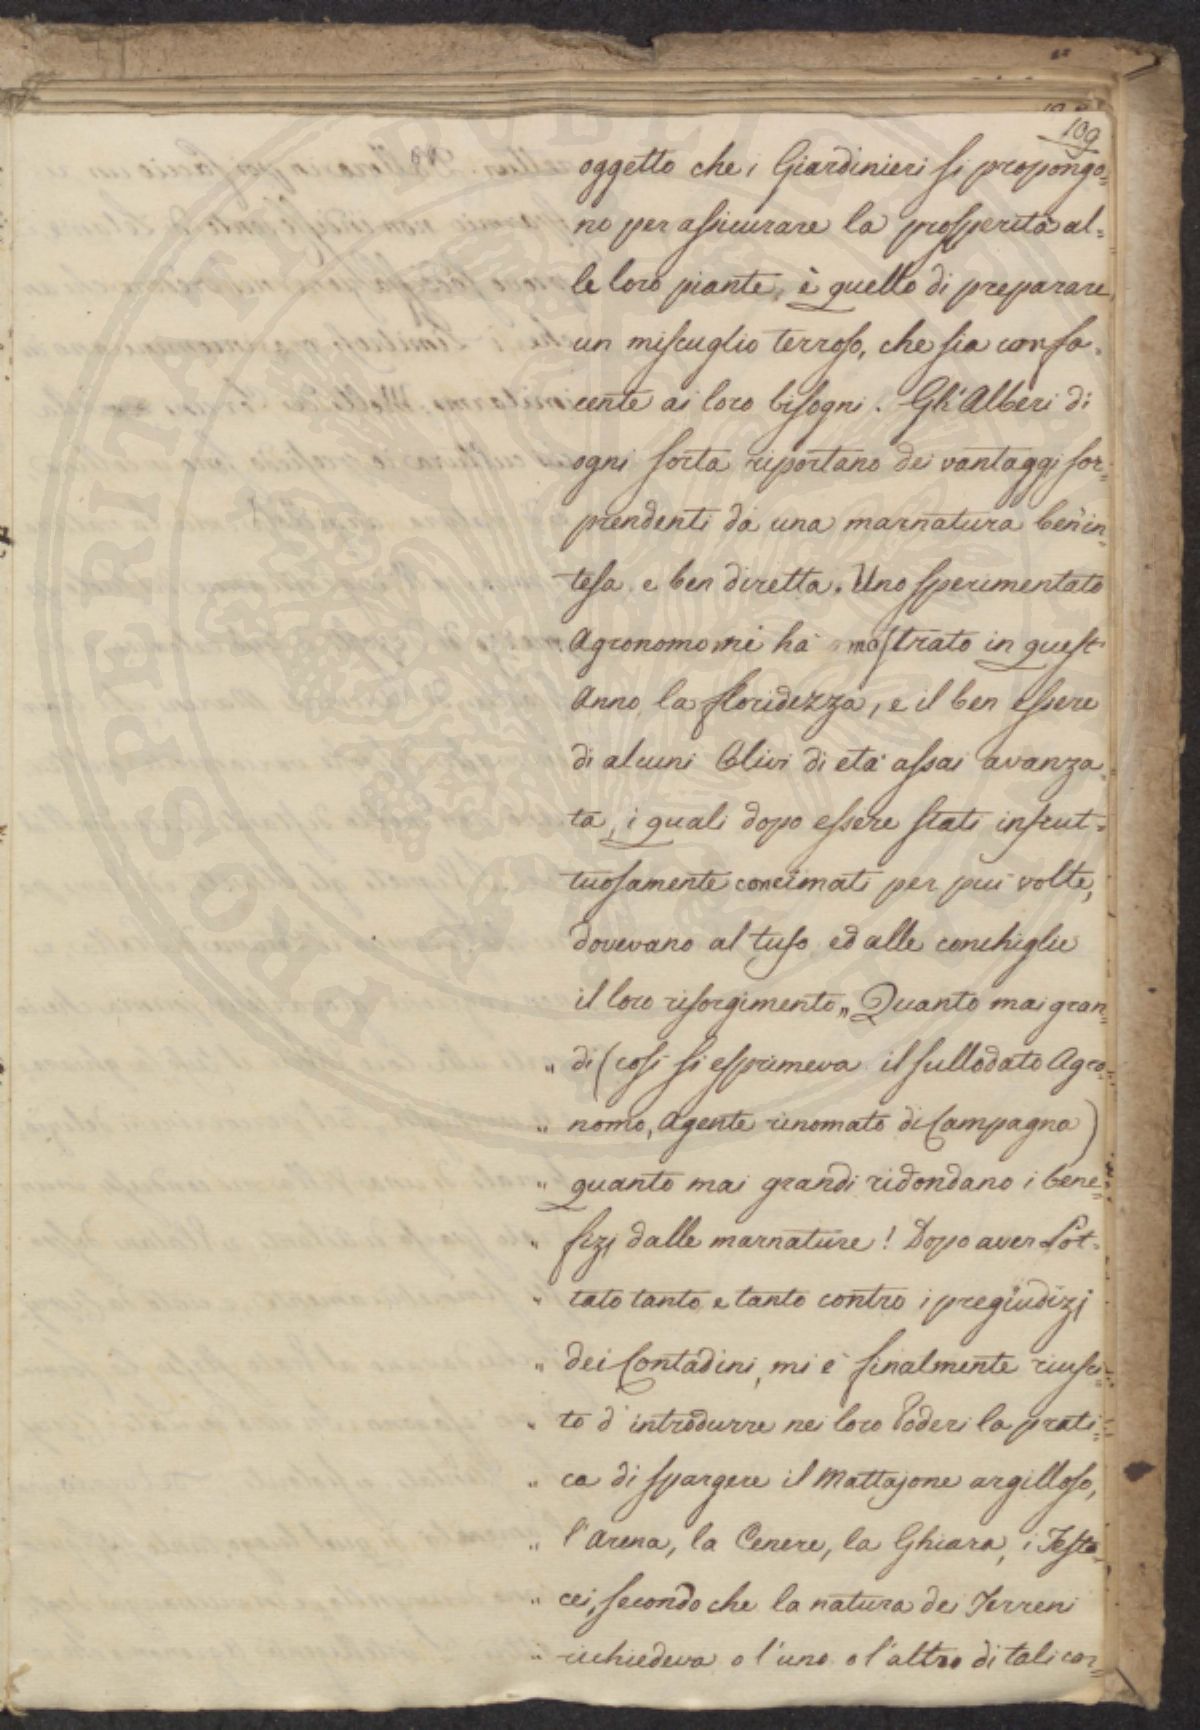 109
oggetto che i Giardinieri si propongo=
no per assicurare la prosperità al=
le loro piante, è quello di preparare
un miscuglio terroso, che sia confa=
cente ai loro bisogni. Gli Alberi di
ogni sorta riportano dei vantaggi sor=
prendenti da una marnatura ben in=
tesa e ben diretta. Uno sperimentato
Agronomo mi ha mostrato in quest'
Anno la floridezza, e il ben essere
di alcuni Olivi di età assai avanza=
ta, i quali dopo essere stati infrut=
tuosamente concimati per più volte,
dovevano al tufo ed alle conchiglie
il loro risorgimento „ Quanto mai gran=
„ di (così si esprimeva il sullodato Agro=
„ nomo, Agente rinomato di Campagna)
„ quanto mai grandi ridondano i bene=
„ fizj dalle marnature! Dopo aver Lot=
„ tato tanto e tanto contro i pregiudizj
„ dei Contadini, mi è finalmente riusci=
„ to d'introdurre nei loro Poderi la prati=
„ ca di spargere il Mattajone argilloso,
„ l'Arena, la Cenere, la Ghiara, i Testa=
„ cei, secondo che la natura dei Terreni
„ richiedeva o l'uno o l'altro di tali cor=
PROSPERITATI PUBLICAE